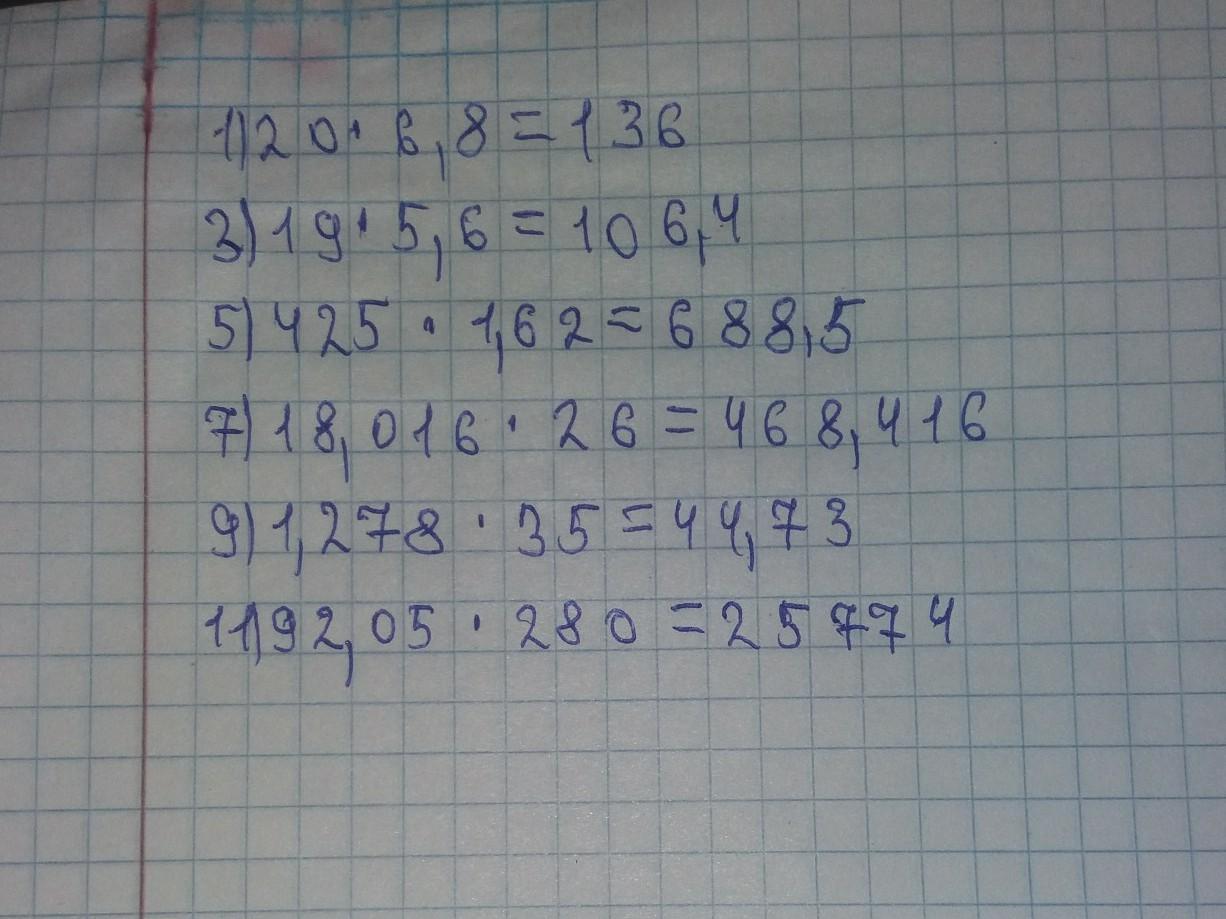 1)20·6,8=136
3)19·5,6=106,4
5)425·1,62=688,5
7)18,016·26=468,416
9)1,278·35=44,73
11)92,05·280=25774